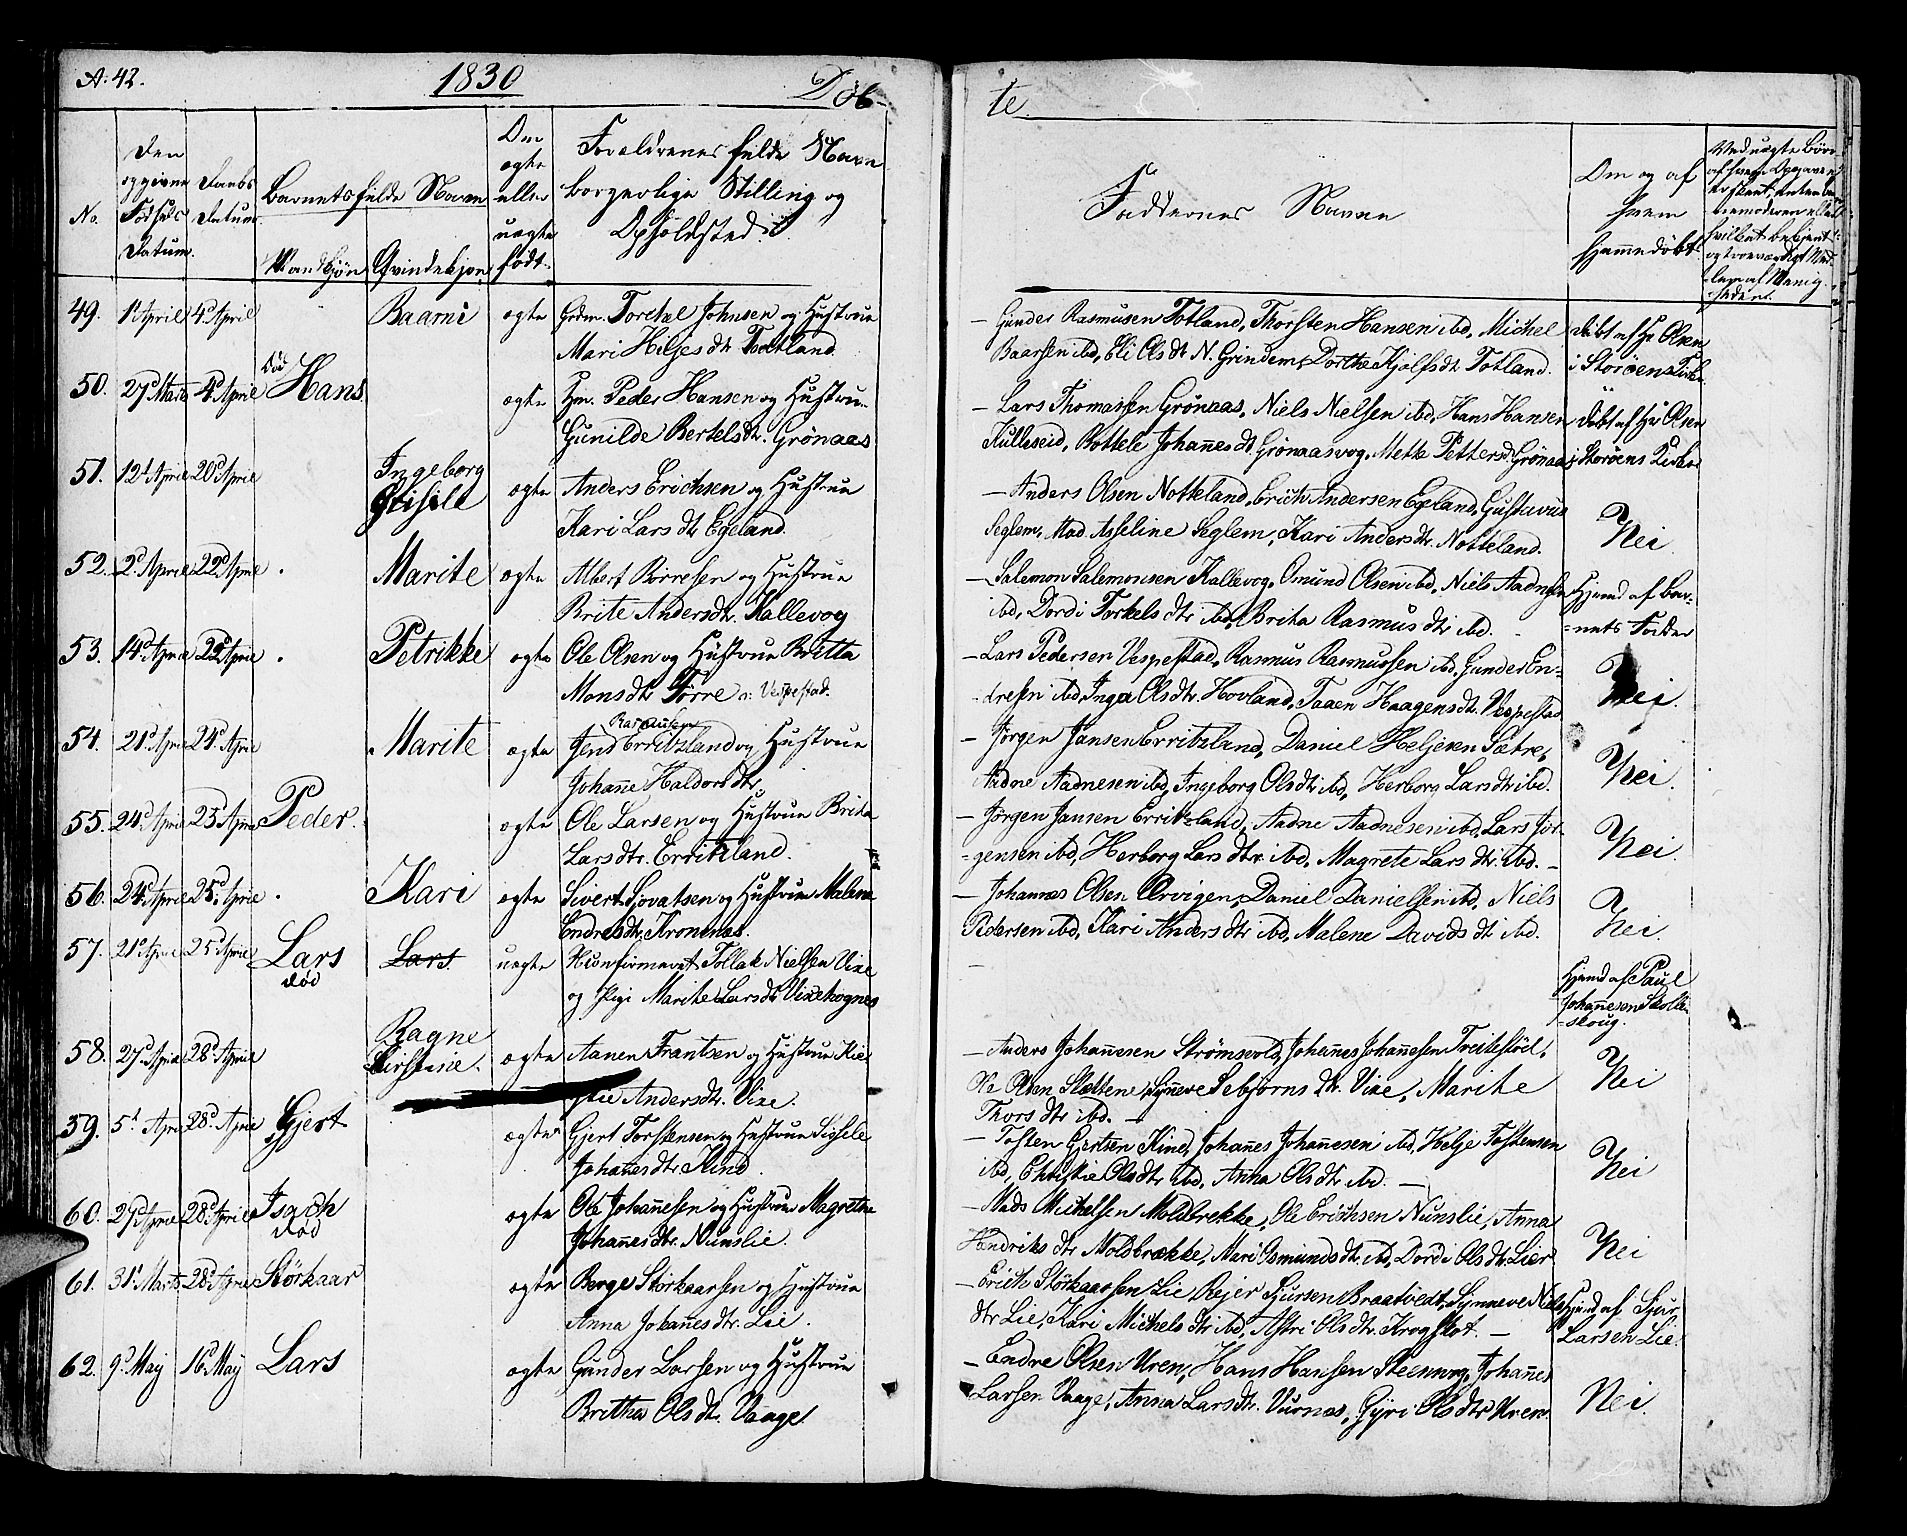 A: 42. 1830 Døb- te
No. Den opgivne Fødsels Datum. Daabs Datum. Barnets fulde Navn Mandkjøn Qvindekjøn. Om ægte eller uægte født. Forældrenes fulde Navn borgerlige Stilling og Opholdsted. Faddernes Navne Om og af hvem hjemmedøbt.
49. 1d April 4d April Baarni ægte Grdm. Torckel Johnsen og Hustrue
Mari Heljesdtr Totland.
– Gunder Rasmusen Totland, Thorsten Hansen ibd, Michel Døbt af Hr Olsen
Baarsen ibd, Eli Olsdtr N. Grindem, Dorthe Kjølfsdtr Totland. i Storøens Kirke.
50. 27d Marts 4d April Død Hans ægte Hm. Peder Hansen og Hustru
Gunilde Bertelsdtr. Grønaas
– Lars Thomassen Grønaas, Niels Nielsen ibd, Hans Hansen Døbt af Hr Olsen
Kulleseid, Bottele Johañesdtr Grønaasvog, Mette Pettersd Grønaas i Storøens Kirke
51. 12d April 20d April Ingeborg
Geisele ægte Anders Erichsen og Hustrue
Kari Larsdtr Egeland.
– Anders Olsen Notteland, Erich Andersen Egeland, Gustavus
Seglem, Mad. Asseline Seglem, Kari Andersdtr. Notteland. Nei
52. 2d April 22d April Marite ægte Albert Børresen og Hustrue
Brite Andersdtr. Kallevog
– Salemon Salemonsen Kallevog, Omund Olsen ibd, Niels Aadnesen Hjemd af Bar-
ibd, Dordi Torkelsdtr ibd, Brita Rasmusdtr ibd. -nets Fader
53. 14d April 22d April Petrikke ægte Ole Olsen og Hustrue Britta
Monsdtr Tørre o: Vespestad.
– Lars Pedersen Vespestad, Rasmus Rasmussen ibd, Gunder En-
-dresen ibd, Inga Olsdtr Hovland, Taaen Haagensdtr. Vespestad Nei.
54. 21d April 24d April Marite ægte Jens Rasmusen Erritzland og Hustrue
Johañe Haldorsdtr
– Jørgen Jansen Erritzland, Daniel Heljesen Sætre,
Aadne Aadnesen ibd, Ingeborg Olsdtr ibd, Herborg Larsdtr ibd. Nei.
55. 24d April 25d April Peder. ægte Ole Larsen og Hustrue Brita
Larsdtr. Erritzland.
– Jørgen Jansen Erritzland, Aadne Aadnesen ibd, Lars Jør-
-gensen ibd, Herborg Larsdtr ibd, Magrete Larsdtr. ibd. – Nei.
56. 24d April 25d April Kari ægte Sivert Sjovatsen og Hustrue Malene
Endresdtr. Kronnes.
– Johannes Olsen Arvigen, Daniel Danielsen ibd, Niels
Pedersen ibd, Kari Andersdtr ibd, Malene Davidsdtr ibd. Nei.
57. 21d April 25d April Lars
død Lars uægte Uconfirmeret Tollak Nielsen Vixe
og Pige Marite Larsdtr Vixehognes
– Hjemd af Paul
Johañesen Skolle-
-skoug.
58. 27d April 28d April Ragne
Kirstine. ægte Aanen Frantsen og Hustrue Kir
stie Andersdtr. Vixe.
– Anders Johañesen Strømsvold, Johañes Johañesen Treitestød,
Ole Olsen Slettene, Synneve Sebjørnsdtr. Vixe, Marithe
Thorsdtr ibd. – Nei
59. 5d April 28d April Gjert ægte Gjert Torstensen og Hustrue Sissele
Johañesdtr. Kind.
– Tosten Gjertsen Kind, Johañes Johañesen ibd, Helje Tostensen
ibd, Christie Olsdtr ibd, Anna Olsdtr ibd. – Nei
60. 27d April 28d April Isach
død ægte Ole Johañesen og Hustrue Magrethe
Johañesdtr. Nunslie.
– Mads Michelsen Moldbrekke, Ole Erichsen Nunslie, Anna
Hendriksdtr Moldbrække, Mari Osmundsdtr ibd, Dordi Olsdtr. Lier Nei
61. 31d Marts 28d April Störkaar ægte Berge Storkaarsen og Hustrue
Anna Johañesdtr. Lie.
– Erich Störkaarsen Lie, Rejer Sjursen Braatvedt, Synneve Niels Hjemd af Sjur
dtr Lie, Kari Michelsdtr ibd, Astri Olsdtr. Krogstot. – Larsen Lie.
62. 9d Maij 16d Maij Lars ægte Gunder Larsen og Hustrue
Brithe Olsdtr. Vaage.
– Endre Olsen Uren, Hans Hansen Steensvog, Johañes
Larsen Vaage, Anna Larsdtr. Vurnes, Gyri Olsdtr Uren. Nei.